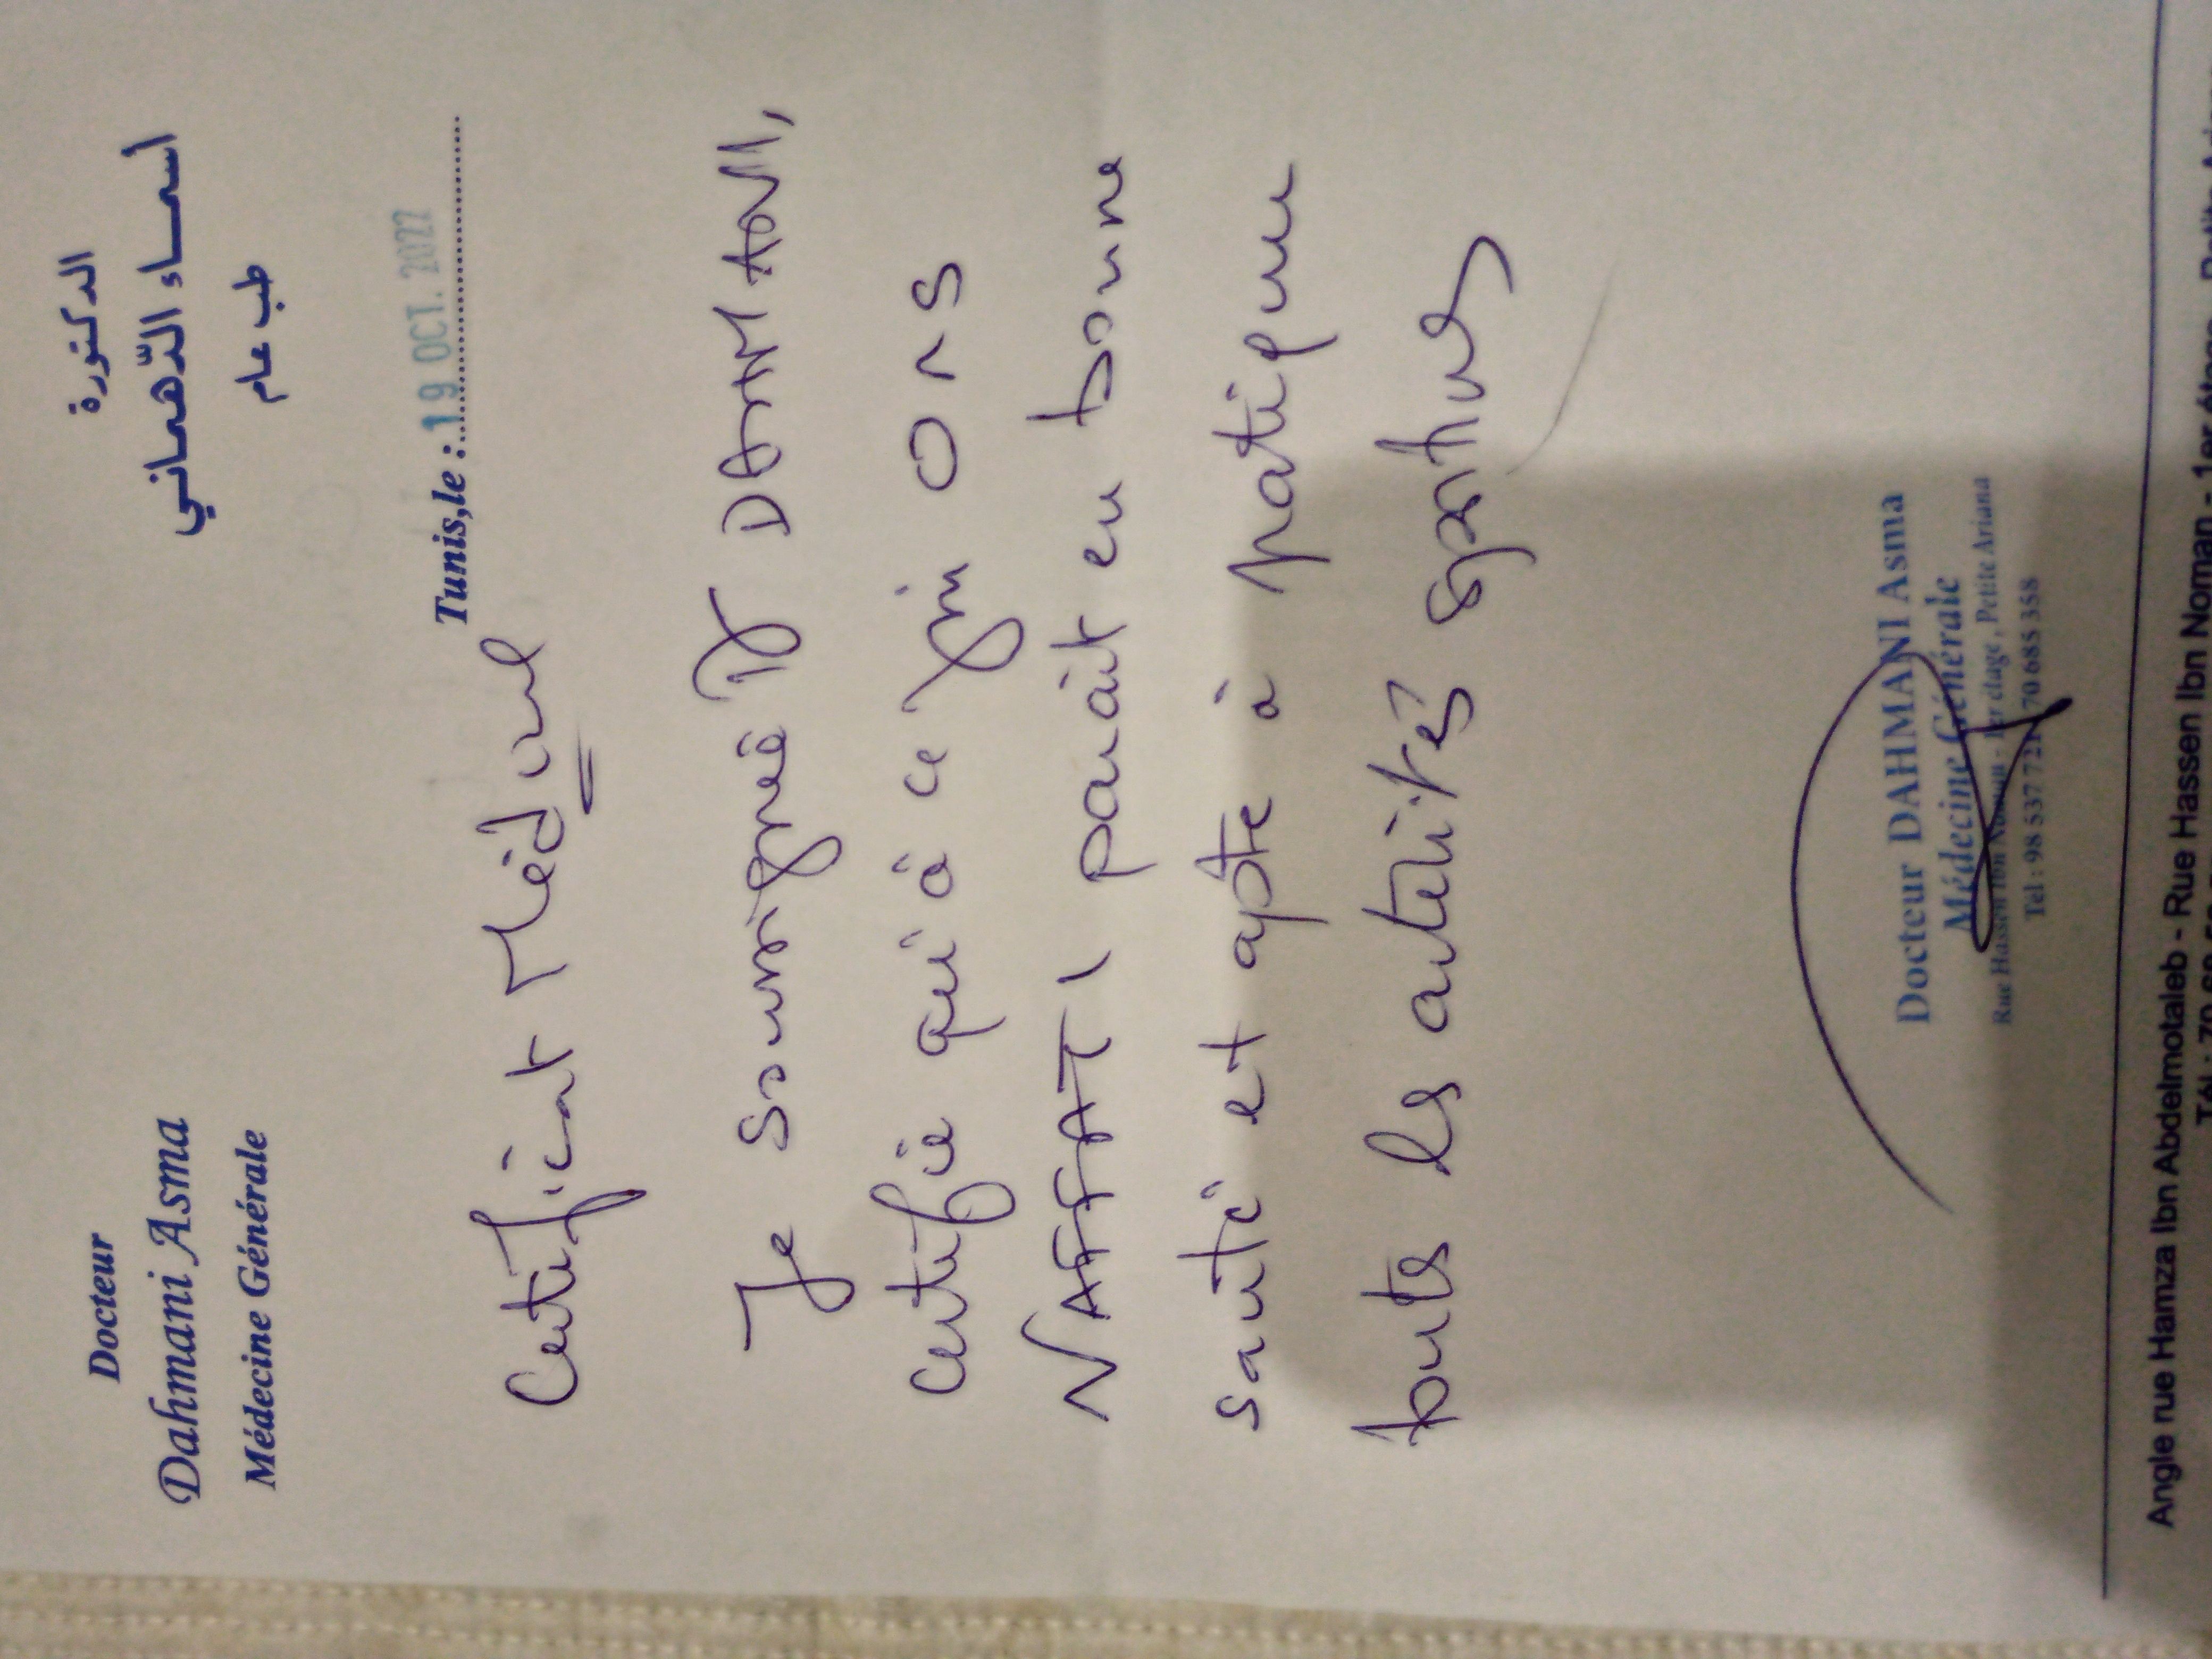 Docteur
Dahmani Asma
Médecine Générale
الدكتورة
أسماء الدّهماني
طب عام
Tunis,le : 19 OCT. 2022
Certificat Médical
Je soussignée Dr DAHMANI,
certifie qui à ce jour ONS
NAFFATI parait en bonne
santé et apte à pratiquer
toutes les activités sportives
Docteur DAHMANI Asma
Médecine Générale
Rue Hassen Ibn Noman - 1er étage, Petite Ariana
Tel : 98 537 721 70 685 358
Angle rue Hamza Ibn Abdelmotaleb - Rue Hassen Ibn Noman - 1er étage
Tél : 70 68